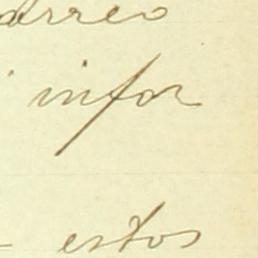 correo
infor
estos